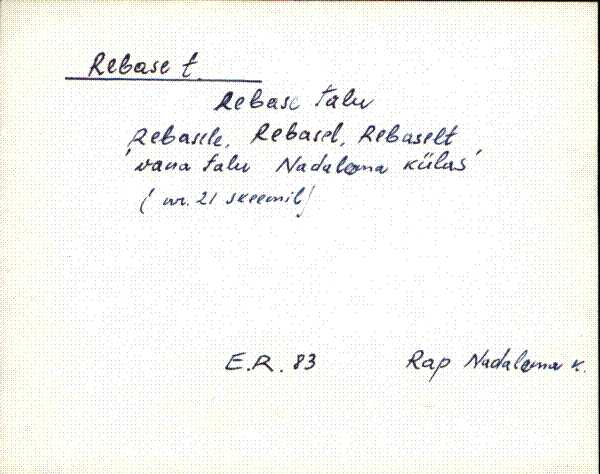 Rebase t.
Rebase talu
Rebasele, Rebasel, Rebaselt
'vana talu Nadalama külas'
( nr. 21 skeemil)
E.R. 83 Rap Nadalama k.